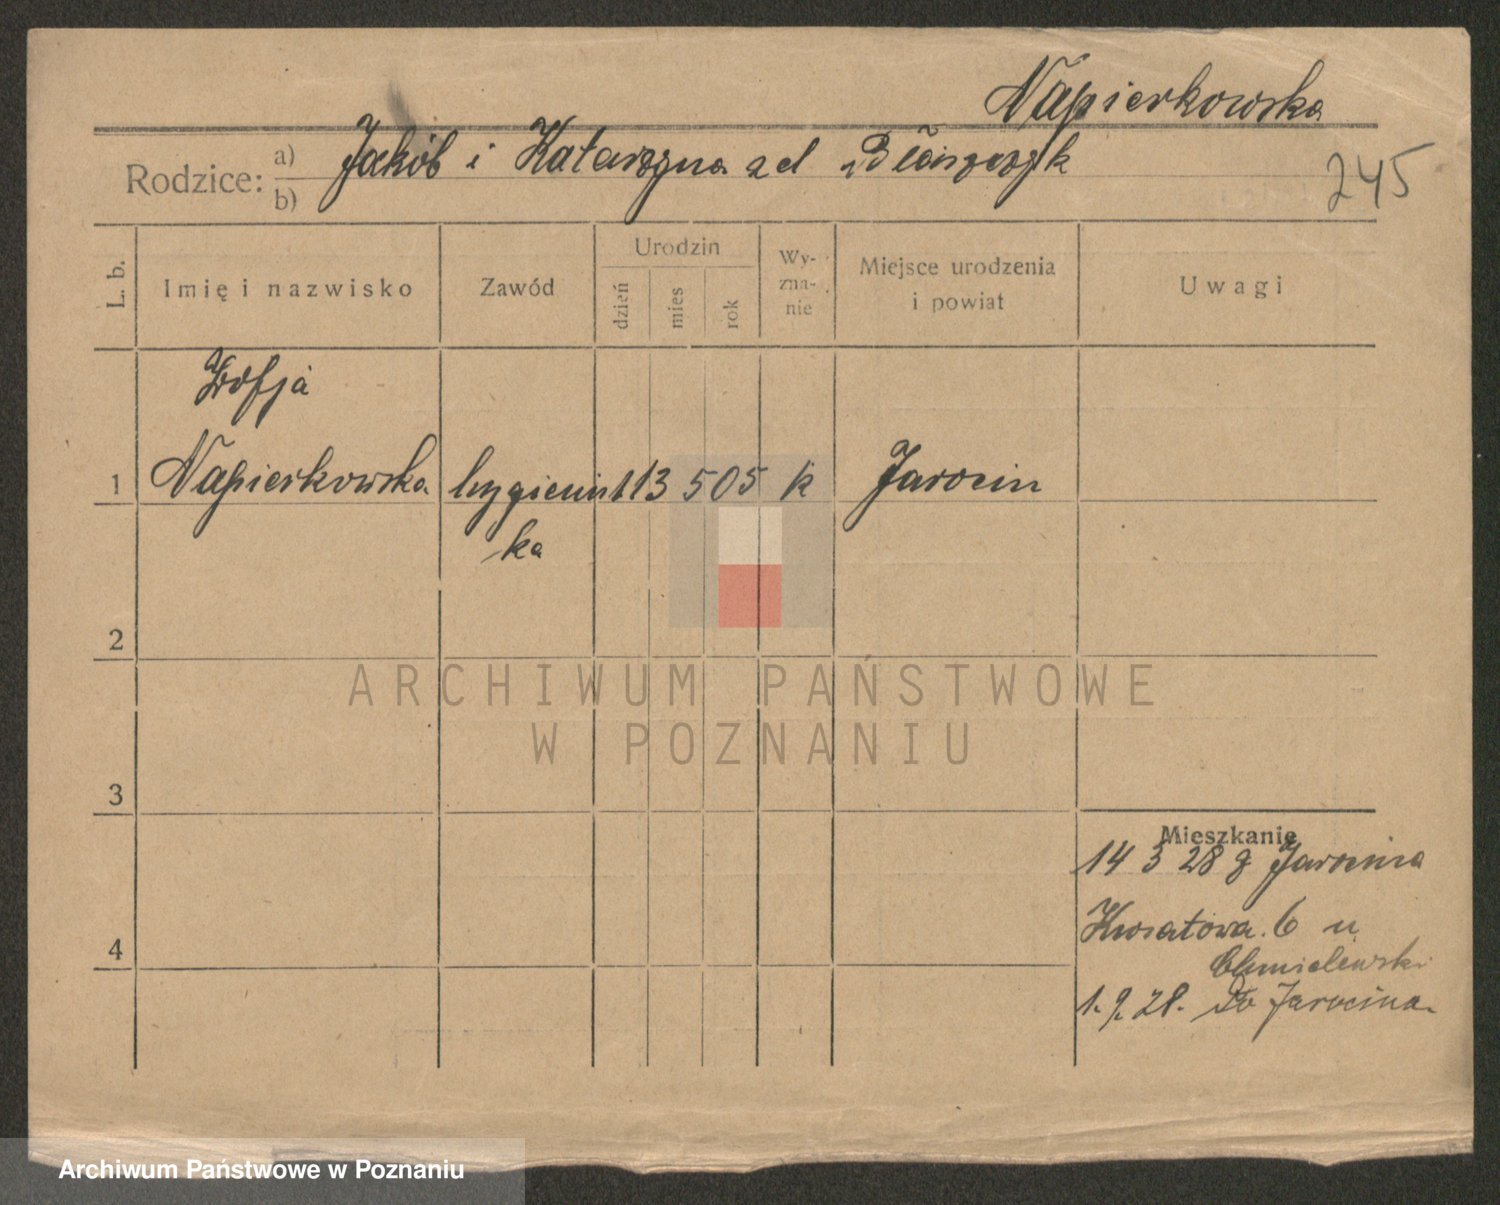 Napierkowska
Rodzice: a) b) Jakób i Katarzyna zd Błaszczyk
245
L. b.
Imię i nazwisko
Zawód
Urodzin
dzień
mies
rok
Wy-
zna-
nie
Miejsce urodzenia
i powiat
Uwagi
Zofja
1 Napierkowska hygienist 13 5 05 k Jarocin
ka
2
ARCHIWUM PAŃSTWOWE
W POZNANIU
3
Mieszkanie
14 3 28 z Jarocina
4 6 u
Chmielewski
1. 9. 28. Do Jarocina
Archiwum Państwowe w Poznaniu